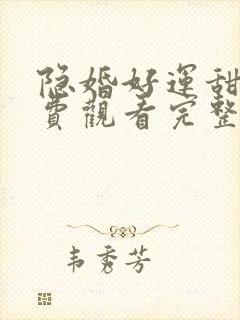 隐婚好运甜
费觀看完整
韦秀芳